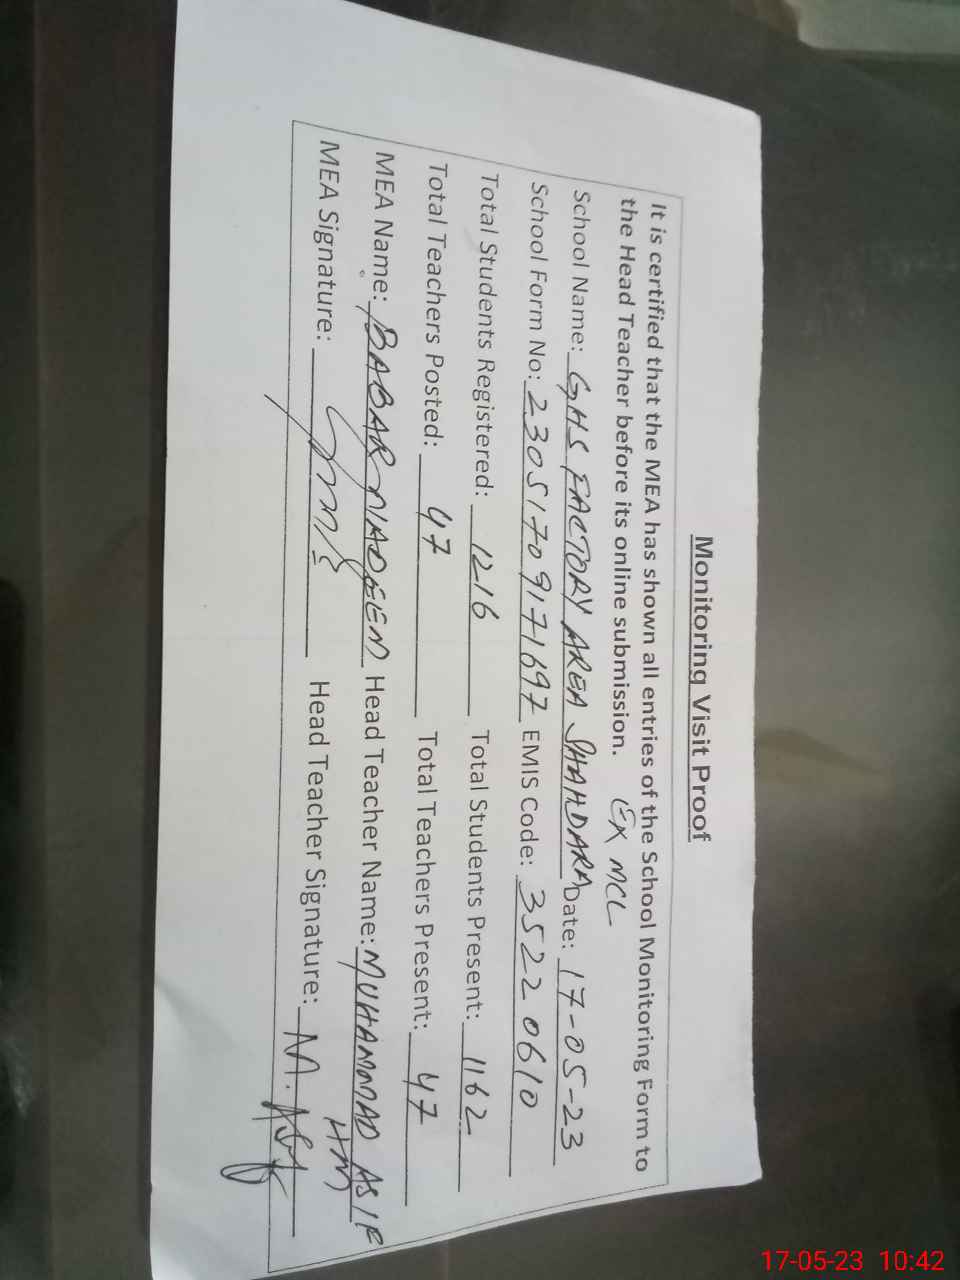 Monitoring Visit Proof
It is certified that the MEA has shown all entries of the School Monitoring Form to
the Head Teacher before its online submission. EX MCL
School Name: GHS FACTORY AREA SHAHDARA Date: 17-05-23
School Form No: 23051709171697 EMIS Code: 35220610
Total Students Registered: 1216 Total Students Present: 1162
Total Teachers Posted: 47 Total Teachers Present: 47
MEA Name: BABAR Head Teacher Name: MUHAMMAD ASIF
HM
MEA Signature: Head Teacher Signature: M.
17-05-23 10:42